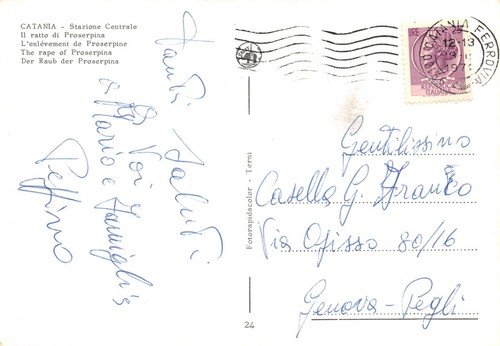 CATANIA - Stazione Centrale
Il ratto di Proserpina
L'enlèvement de Proserpine
The rape of Proserpina
Der Raub der Proserpina
Tanti Saluti
a Voi
Mario e famiglia
Peppino
Fotorapidacolor - Terni
24
CATANIA FERROVIA
12-13
Gentilissimo
Casella G. Franco
Via Opisso 80/16
Genova-Pegli